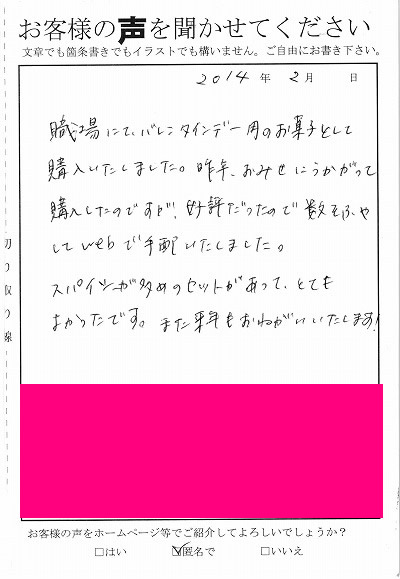 お客様の声を聞かせてください
文章でも箇条書きでもイラストでも構いません。ご自由にお書き下さい。
2014 年 2月 日
職場にて、バレンタインデー用のお菓子として
購入いたしました。昨年、おみせにうかがって
購入したのですが、好評だったので数をふや
してwebで手配いたしました。
スパイシーが多めのセットがあって、とても
よかったです。また来年もおねがいいたします!
切り取り線
お客様の声をホームページ等でご紹介してよろしいでしょうか?
□はい ☑匿名で □いいえ